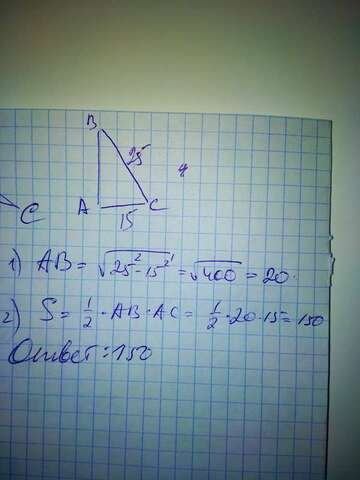 B
25
A
C
15
C
1) AB = √25² - 15² = √400 = 20.
2) S = 1/2 · AB · AC = 1/2 · 20 · 15 = 150
Ответ: 150